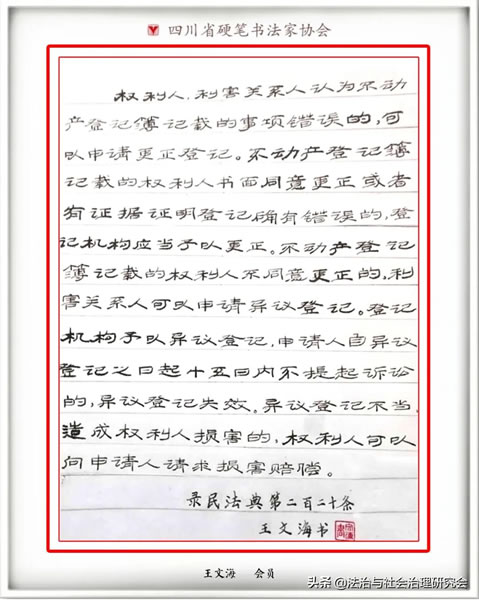 四川省硬笔书法家协会
权利人、利害关系人认为不动
产登记簿记载的事项错误的,可
以申请更正登记。不动产登记簿
记载的权利人书面同意更正或者
有证据证明登记确有错误的,登
记机构应当予以更正。不动产登记
簿记载的权利人不同意更正的,利
害关系人可以申请异议登记。登记
机构予以异议登记,申请人自异议
登记之日起十五日内不提起诉讼
的,异议登记失效。异议登记不当,
造成权利人损害的,权利人可以
向申请人请求损害赔偿。
录民法典第二百二十条
王文海书
王文海 会员
头条 @法治与社会治理研究会